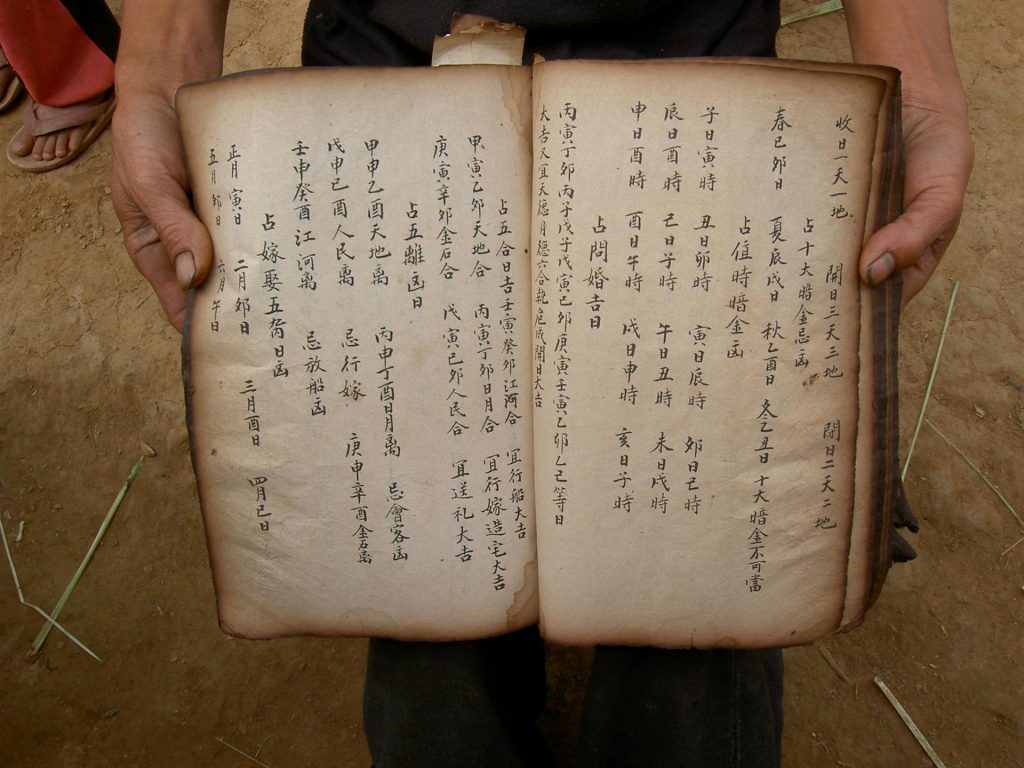 收日一天一地 開日三天三地 閉日二天二地
占十大暗金忌凶
春巳卯日 夏辰戌日 秋乙酉日 冬乙丑日 十大暗金不可當
占值時暗金凶
子日寅時 丑日卯時 寅日辰時 卯日己時
辰日酉時 己日子時 午日丑時 未日戌時
申日酉時 酉日午時 戌日申時 亥日子時
占問婚吉日
丙寅丁卯丙子戊子戊寅己卯庚寅壬寅乙卯乙己等日
大吉又宜天德月德六合執危成開日大吉
占五合日吉壬寅癸卯江河合 宜行船大吉
甲寅乙卯天地合 丙寅丁卯日月合 宜行嫁造宅大吉
庚寅辛卯金石合 戊寅己卯人民合 宜送礼大吉
占五離凶日
甲申乙酉天地离 丙申丁酉日月离 忌會客凶
戊申己酉人民离 忌行嫁 庚申辛酉金石离
壬申癸酉江河离 忌放船凶
占嫁娶五日凶
正月寅日 二月卯日 三月酉日 四月巳日
五月卯日 六月午日